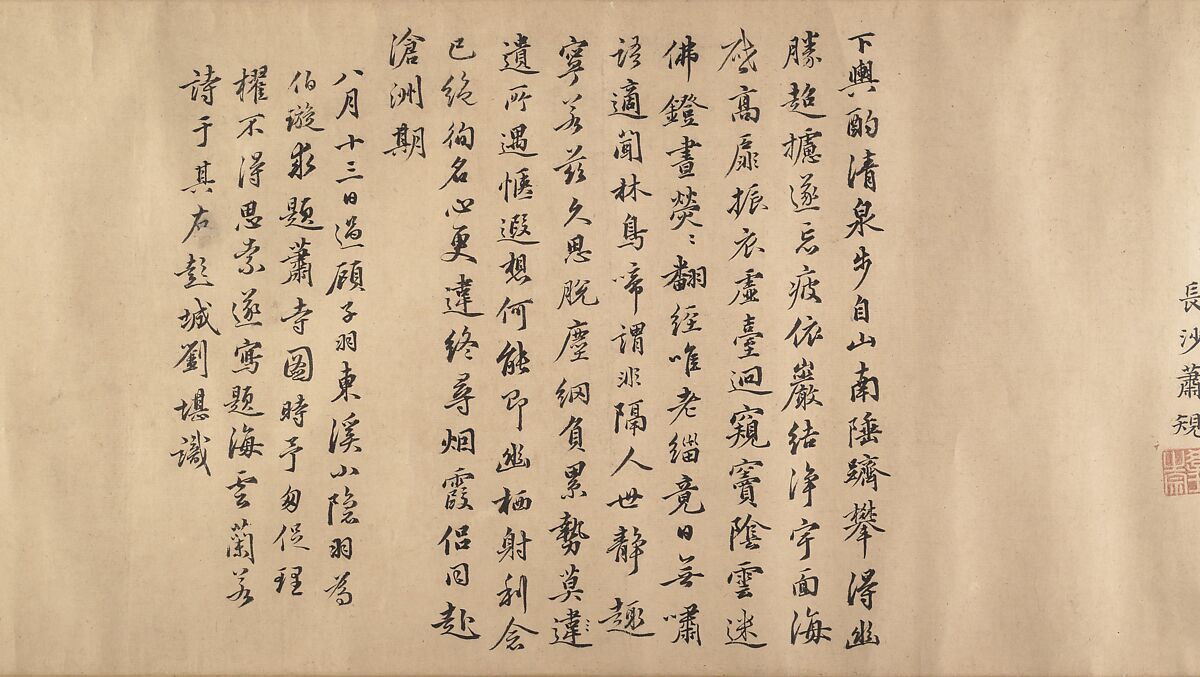 長沙蕭規
下輿酌清泉步自山南陲躋攀得幽
勝超攄遂忘疲依巖結淨宇面海
啟高扉振衣虛臺迥窺竇陰雲迷
佛鐙晝熒〻翻經唯老緇竟日無嘯
語適聞林鳥啼謂非隔人世靜趣
寧若茲久思脫塵網負累勢莫違〻
遺所遇愜遐想何能即幽栖射利念
已絕徇名心更違終尋烟霞侶同赴
滄洲期
八月十三日過顧子羽東溪小隱羽為
伯璇求題蕭寺圖時予匆促理
櫂不得思索遂寫題海雲蘭若
詩于其右彭城劉堪識